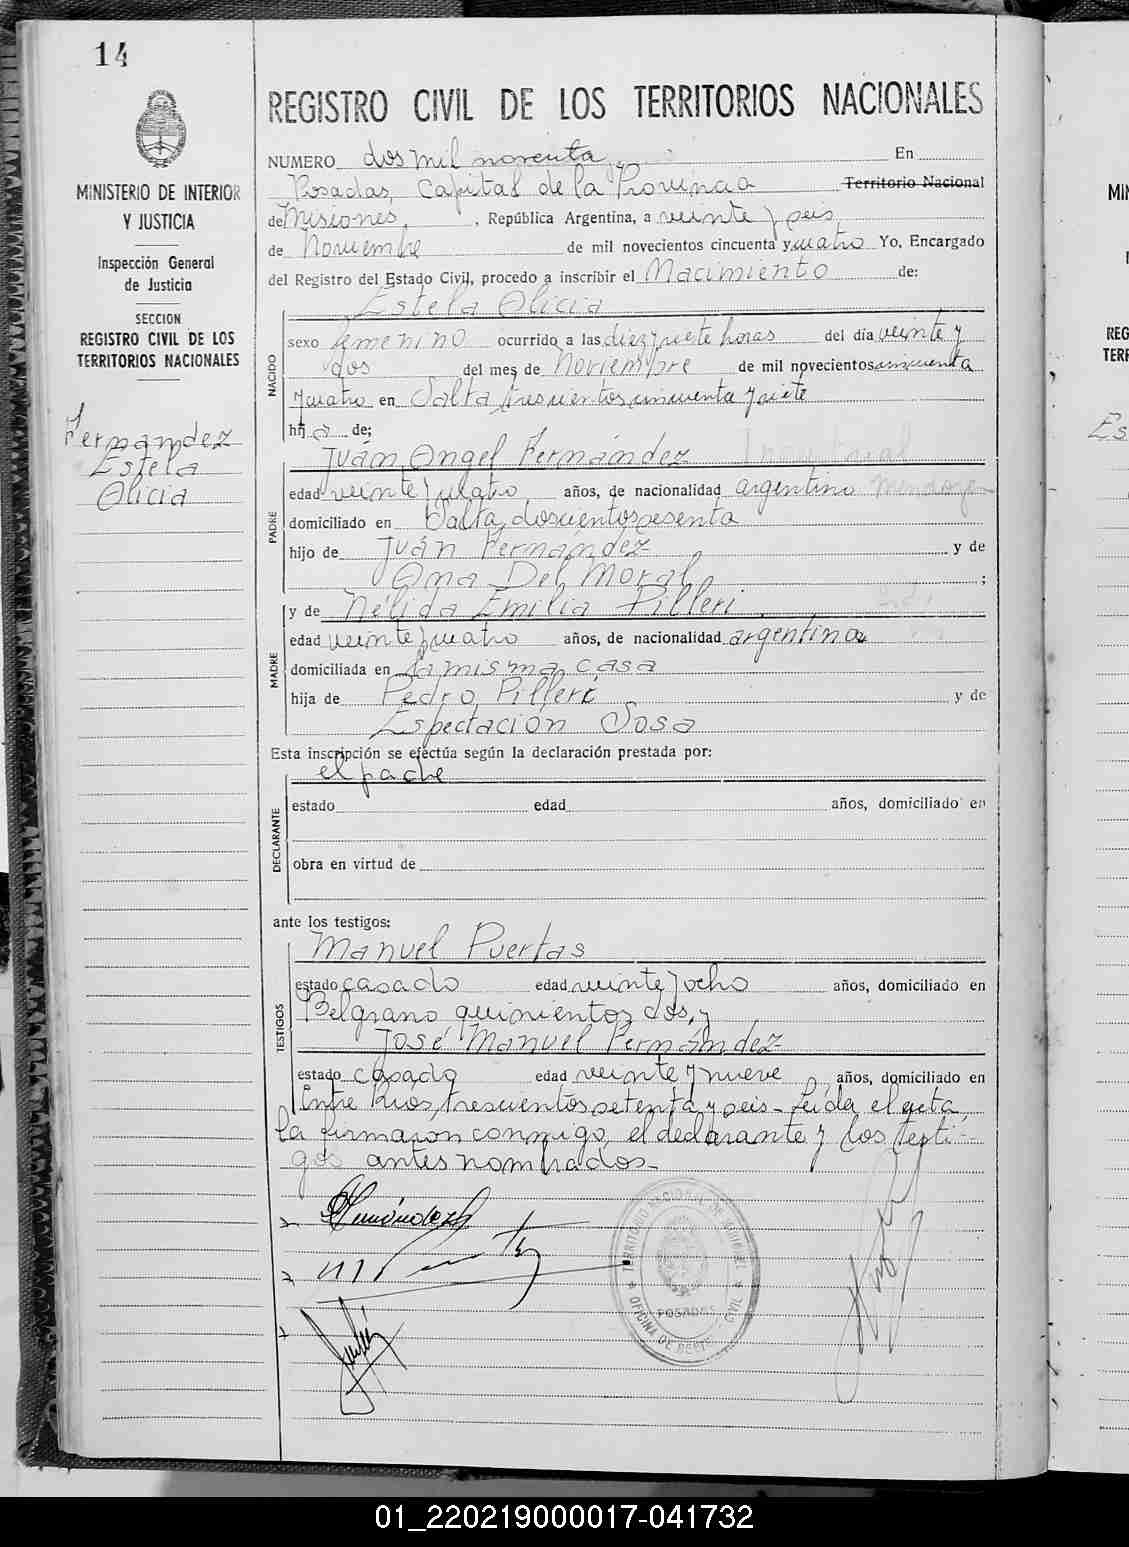 14
REGISTRO CIVIL DE LOS TERRITORIOS NACIONALES
MINISTERIO DE INTERIOR
Y JUSTICIA
Inspección General
de Justicia
SECCION
REGISTRO CIVIL DE LOS
TERRITORIOS NACIONALES
Fernandez
Estela
Alicia
NUMERO dos mil noventa En
Posadas, Capital de la Provincia Territorio Nacional
de Misiones, República Argentina, a veinte y seis
de Noviembre de mil novecientos cincuenta y cuatro Yo, Encargado
del Registro del Estado Civil, procedo a inscribir el Nacimiento de:
Estela Alicia
NACIDO
sexo femenino ocurrido a las diez y siete horas del día veinte y
dos del mes de Noviembre de mil novecientos cincuenta
y cuatro en Salta trescientos cincuenta y siete
hija de;
Juán Angel Fernández
PADRE
edad veinte y cuatro años, de nacionalidad argentino
domiciliado en Salta, doscientos sesenta
hijo de Juán Fernández y de
Ana Del Moral ;
y de Nélida Emilia Pilleri
MADRE
edad veinte y cuatro años, de nacionalidad argentina
domiciliada en la misma casa
hija de Pedro Pilleri y de
Espectación Sosa
Esta inscripción se efectúa según la declaración prestada por:
el padre
DECLARANTE
estado edad años, domiciliado en
obra en virtud de
ante los testigos:
Manuel Puertas
TESTIGOS
estado casado edad veinte y ocho años, domiciliado en
Belgrano quinientos dos, y
José Manuel Fernández
estado casado edad veinte y nueve años, domiciliado en
Entre Rios, trescientos setenta y seis - Leída el acta,
la firmaron conmigo, el declarante y los testi-
gos antes nombrados-
TERRITORIO NACIONAL DE MISIONES
POSADAS
OFICINA DE REGISTRO CIVIL
MIN
REG
TERR
Es
01_220219000017-041732